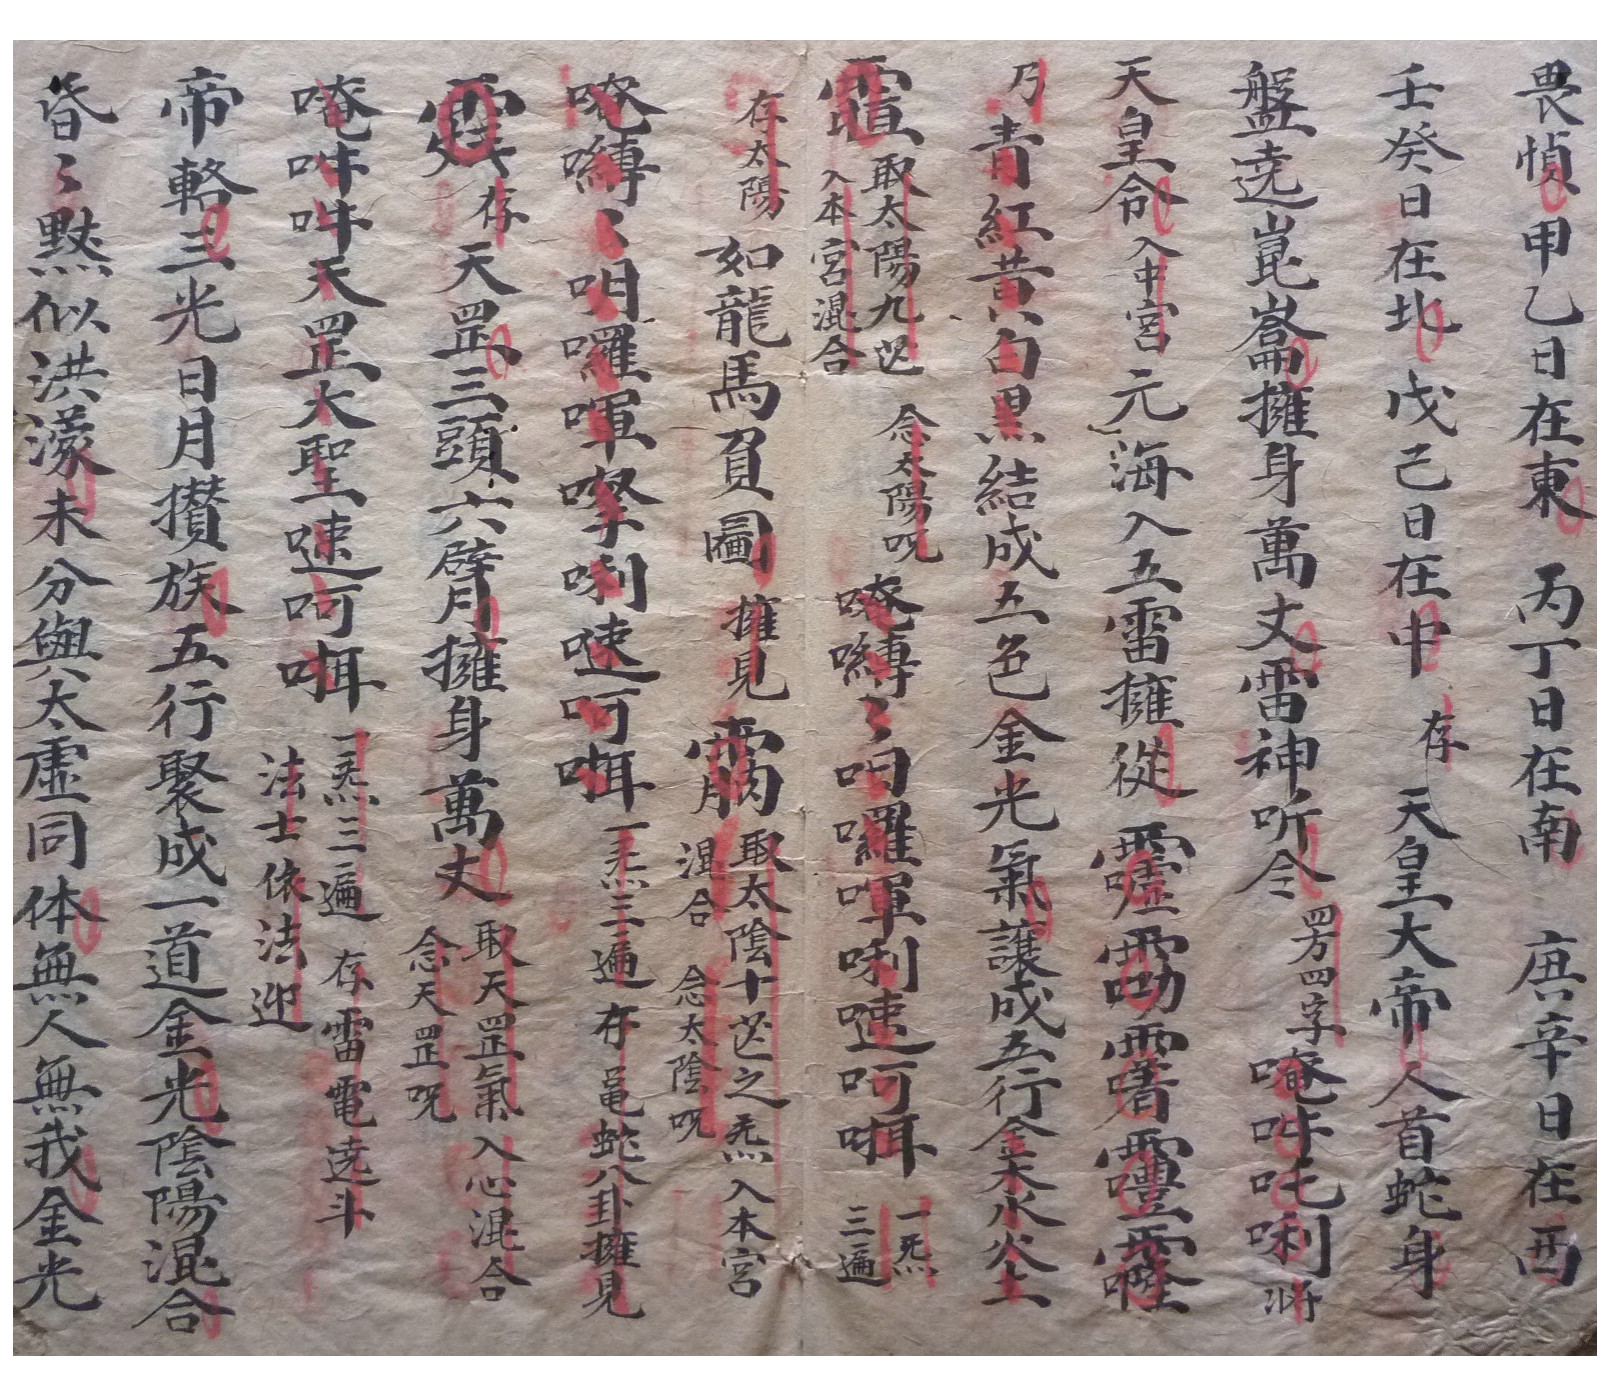 畏愼甲乙日在東 丙丁日在南 庚辛日在西
壬癸日在北 戊己日在中 存 天皇大帝人首蛇身
盤遶崑崙擁身萬丈雷神听令 罗方四字 唵吽吒唎 将
天皇令 入中宮 元海入五雷擁從
乃青紅黄白黑結成五色金光氣讓成五行金木水火土
取太陽九炁 入本宮混合 念太陽呪 嚩〻囉唎速呵 一炁三遍
存太陽 如龍馬負圖 擁見 取太陰十炁之炁入本宮混合 念太陰呪
嚩〻囉唎速呵 一炁三遍 存黾蛇八卦擁見
存 天罡三頭六臂擁身萬丈 取天罡氣入心混合 念天罡呪
唵吽吽天罡大聖速呵 一炁三遍 存雷電遶斗 法士依法迎
帝輅三光日月攅族五行聚成一道金光陰陽混合
昏〻黙似洪濛未分與太虛同体無人無我金光